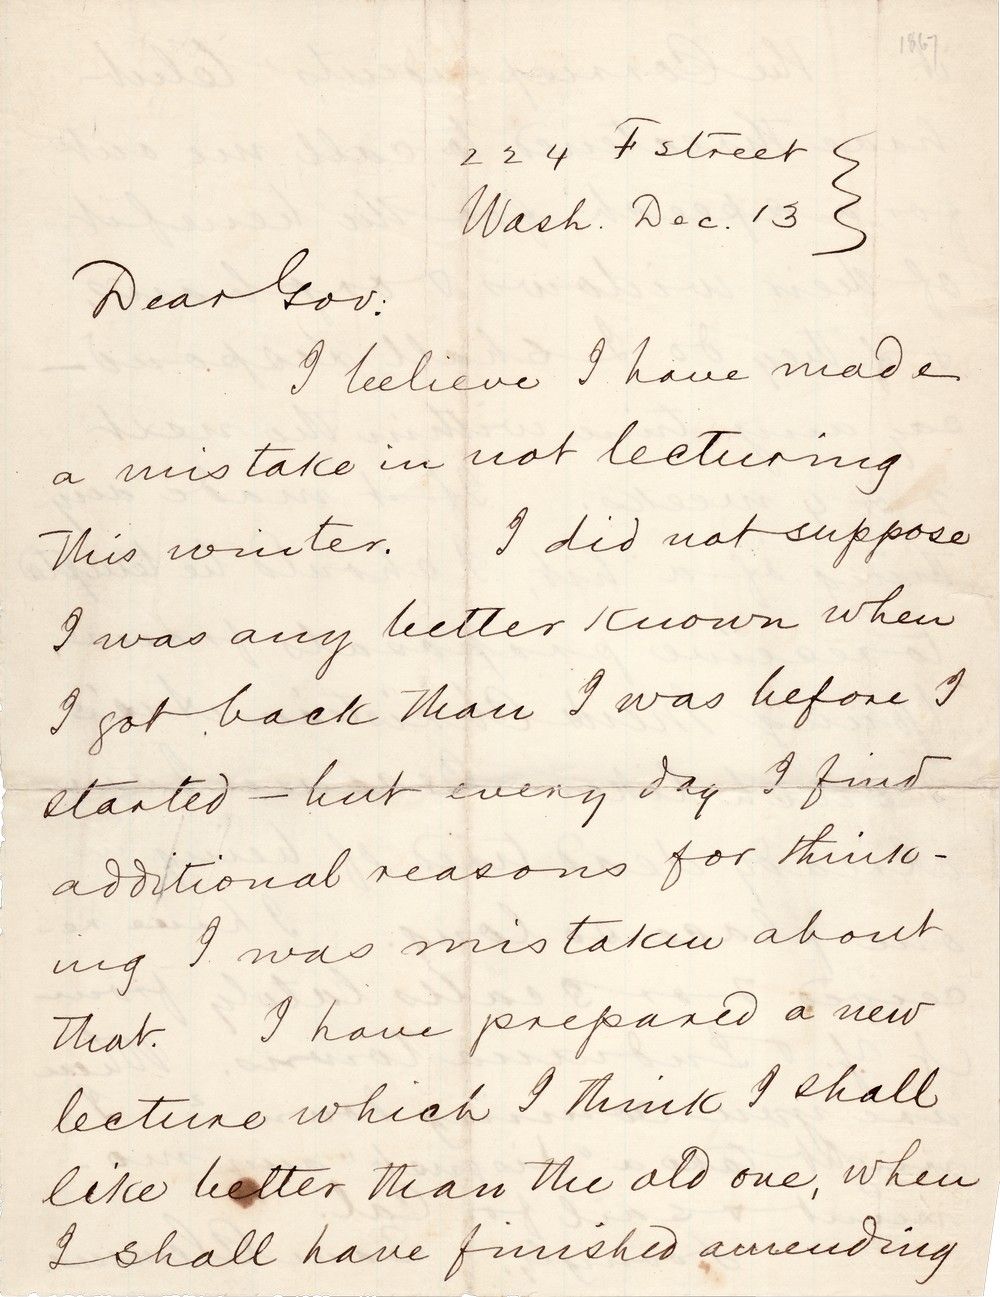 1867
224 F street
Wash. Dec. 13
Dear Gov:
I believe I have made
a mistake in not lecturing
this winter. I did not suppose
I was any better known when
I got back than I was before I
started — but every day I find
additional reasons for think-
ing I was mistaken about
that. I have prepared a new
lecture which I think I shall
like better than the old one, when
I shall have finished amending